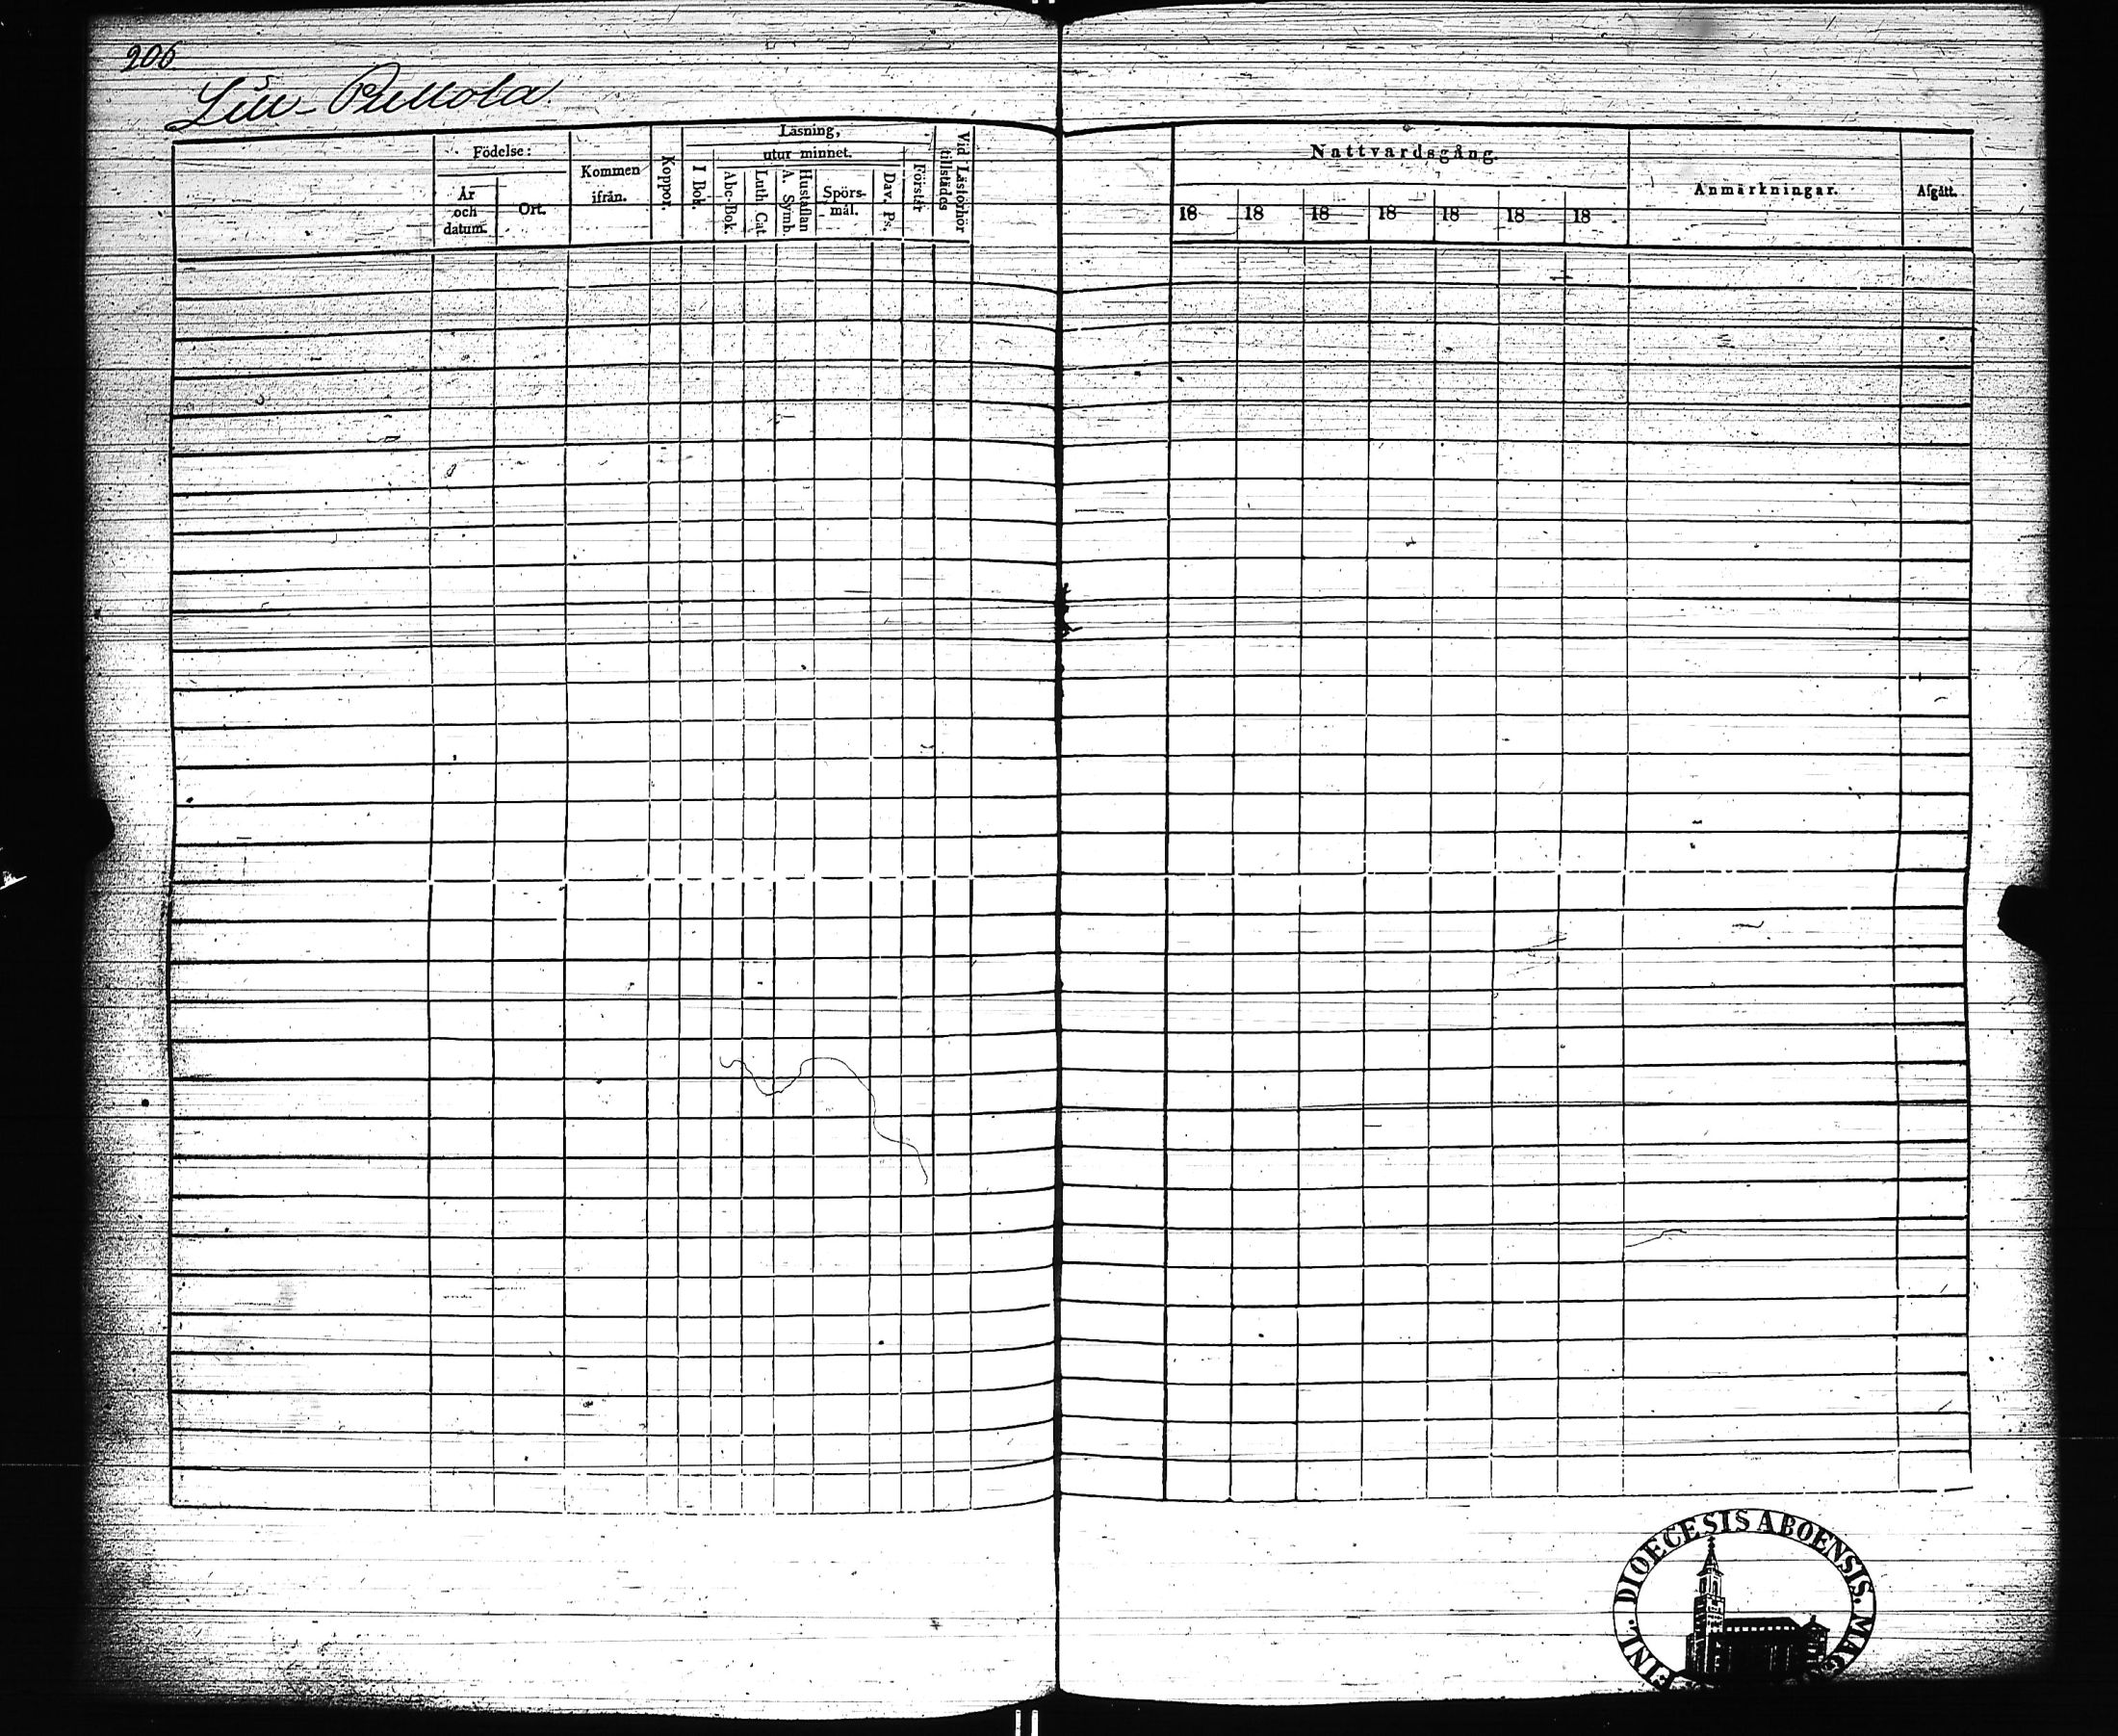 206
Födelse:
År och datum.
Ort.
Kommen ifrån.
Koppor.
Läsning,
I Bok.
utur minnet.
Abc-Bok.
Luth. Cat.
Hustaflan
A. Symb.
Spörsmål.
Dav. Ps.
Förstår
Vid Läsförhör
tillstädes
Nattvardsgång.
18 18 18 18 18 18 18
Anmärkningar.
Afgått.
FINL. DIOECESIS ABOENSIS.